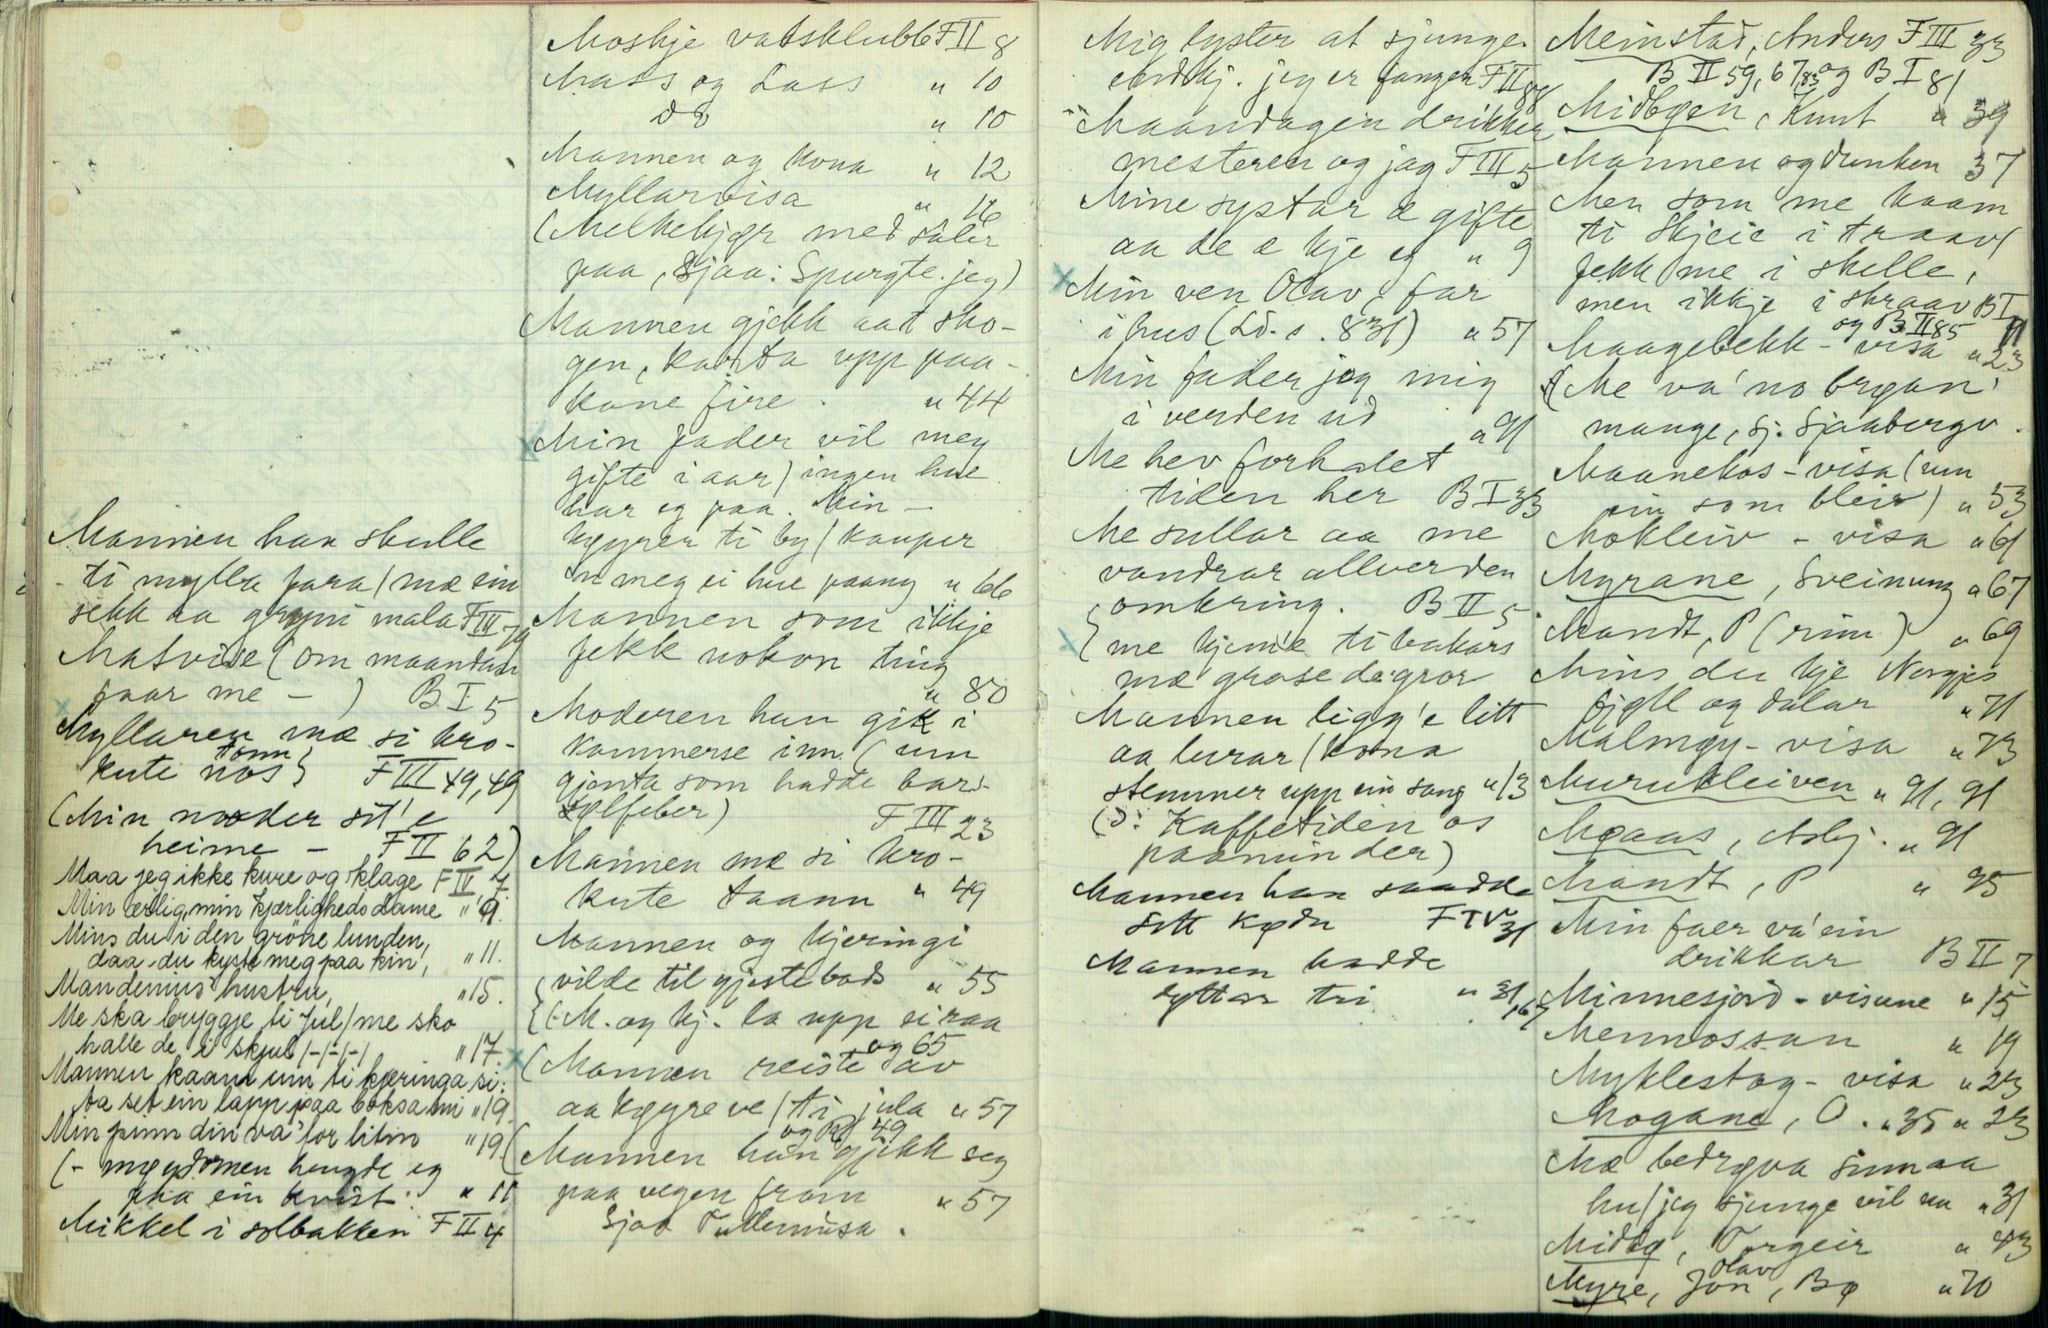 Mannen han skulle
ti mylla fara / mæ ein
sekk aa grjyn mala F III 79
Matvise (om maandan
faar me - ) B I 5
Myllaren mæ si kro-
tonn
kute nos} F III 49, 49
(Min moder sit'e
heime - F II 62)
Maa jeg ikke kure og klage F IV 7
Min ærlig, min kjærligheds dame " 9.
Mins du i den grøne lunden,
daa du kyste meg paa kin, " 11.
Mandenius hustru, " 15.
Me ska bryggje ti Jul / me sko
halle de i skjul /-/-/-/ " 17.
Mannen kaam inn ti kjeringa si:
ta set ein lapp paa boksa mi " 19.
Min punn din va' for litin " 19
(- møydomen hengde eg
paa ein kvist. " 11
Mikkel i solbakken F II 4
Moskje vatsklubb F II 8
Mass og Lass " 10
do " 10
Mannen og Kona " 12
Myllarvisa " 16
(Melkekjær med såler
paa, sjaa: Spurgte jeg)
Mannen gjekk aat sko-
gen, karta upp paa-
kane fire. " 44
Min fader vil meg
gifte i aar / ingen hue
har eg paa. Min -
køyrer ti by / kauper
en meg ei hue paany " 66
Mannen som ikkje
fekk nokon ting
" 80
Moderen hun gik i
kammerse inn (um
gjenta som hadde bar-
selfeber) F III 23
Mannen mæ si kro-
kute taann " 49
Mannen og kjeringi
vilde til gjestebods " 55
(M. og kj. la upp ei raa
og 65
(Mannen reiste av
aa køyre ve / ti jula " 57
og 49
(Mannen han gjekk seg
paa vegen fram " 57
Sjaa Tullemisa.
Mig lyster at sjunge
endkj. jeg er fangen F II 88
Maandagen drikker
mesteren og jag F III 5
Mine systar æ gifte
aa de æ kje eg " 9
Min ven Olav, far
i hus (Ld. s. 831) " 57
Min fader jog mig
i verden ud " 91
Me hev forhalet
tiden her B I 33
Me sullar aa me
vandrar allverden
omkring. B II 5
{me kjeme ti bakars
mæ grase de gror
Mannen ligg'e litt
aa lurar / kona
stemmer upp ein sang " 13
(ɔ: Kaffetiden os
paaminder)
Mannen han saadde
sitt kødn F IV 31
Mannen hadde
dyttar tri " 31, 67
Meinstad, Anders F III 33
B II 59, 67, 83 og B I 81
Midbøen, Knut " 39
Mannen og dunken 37
Men som me kaam
ti Skjeie i traav /
fekk me i skelle,
men ikkje i skraav B I 11
og B II 85
Maagebekk - visa " 23
(Me va' no brøan'
mange, sj. Sjaabergv.
Maanekos - visa (um
ein som bleiv) " 53
Mokleiv - visa " 61
Myrane, Sveinung " 67
Mandt, P (rim) " 69
Mins du kje Norgjes
fjell og dalar " 71
Malmøy - visa " 73
Murukleiven " 91, 91
Moaas, Asbj. " 91
Mandt, P " 95
Min faer va' ein
drikkar B II 7
Minnesjord - visune " 15
Mennossan " 19
Myklestøg - visa " 23
Mogane, O. " 35 " 23
Mæ bedrøva sinn aa
hu / jeg sjunge vil nu " 31
Midbø, Torgeir " 43
Olav
Myre, Jon, Bø " 70